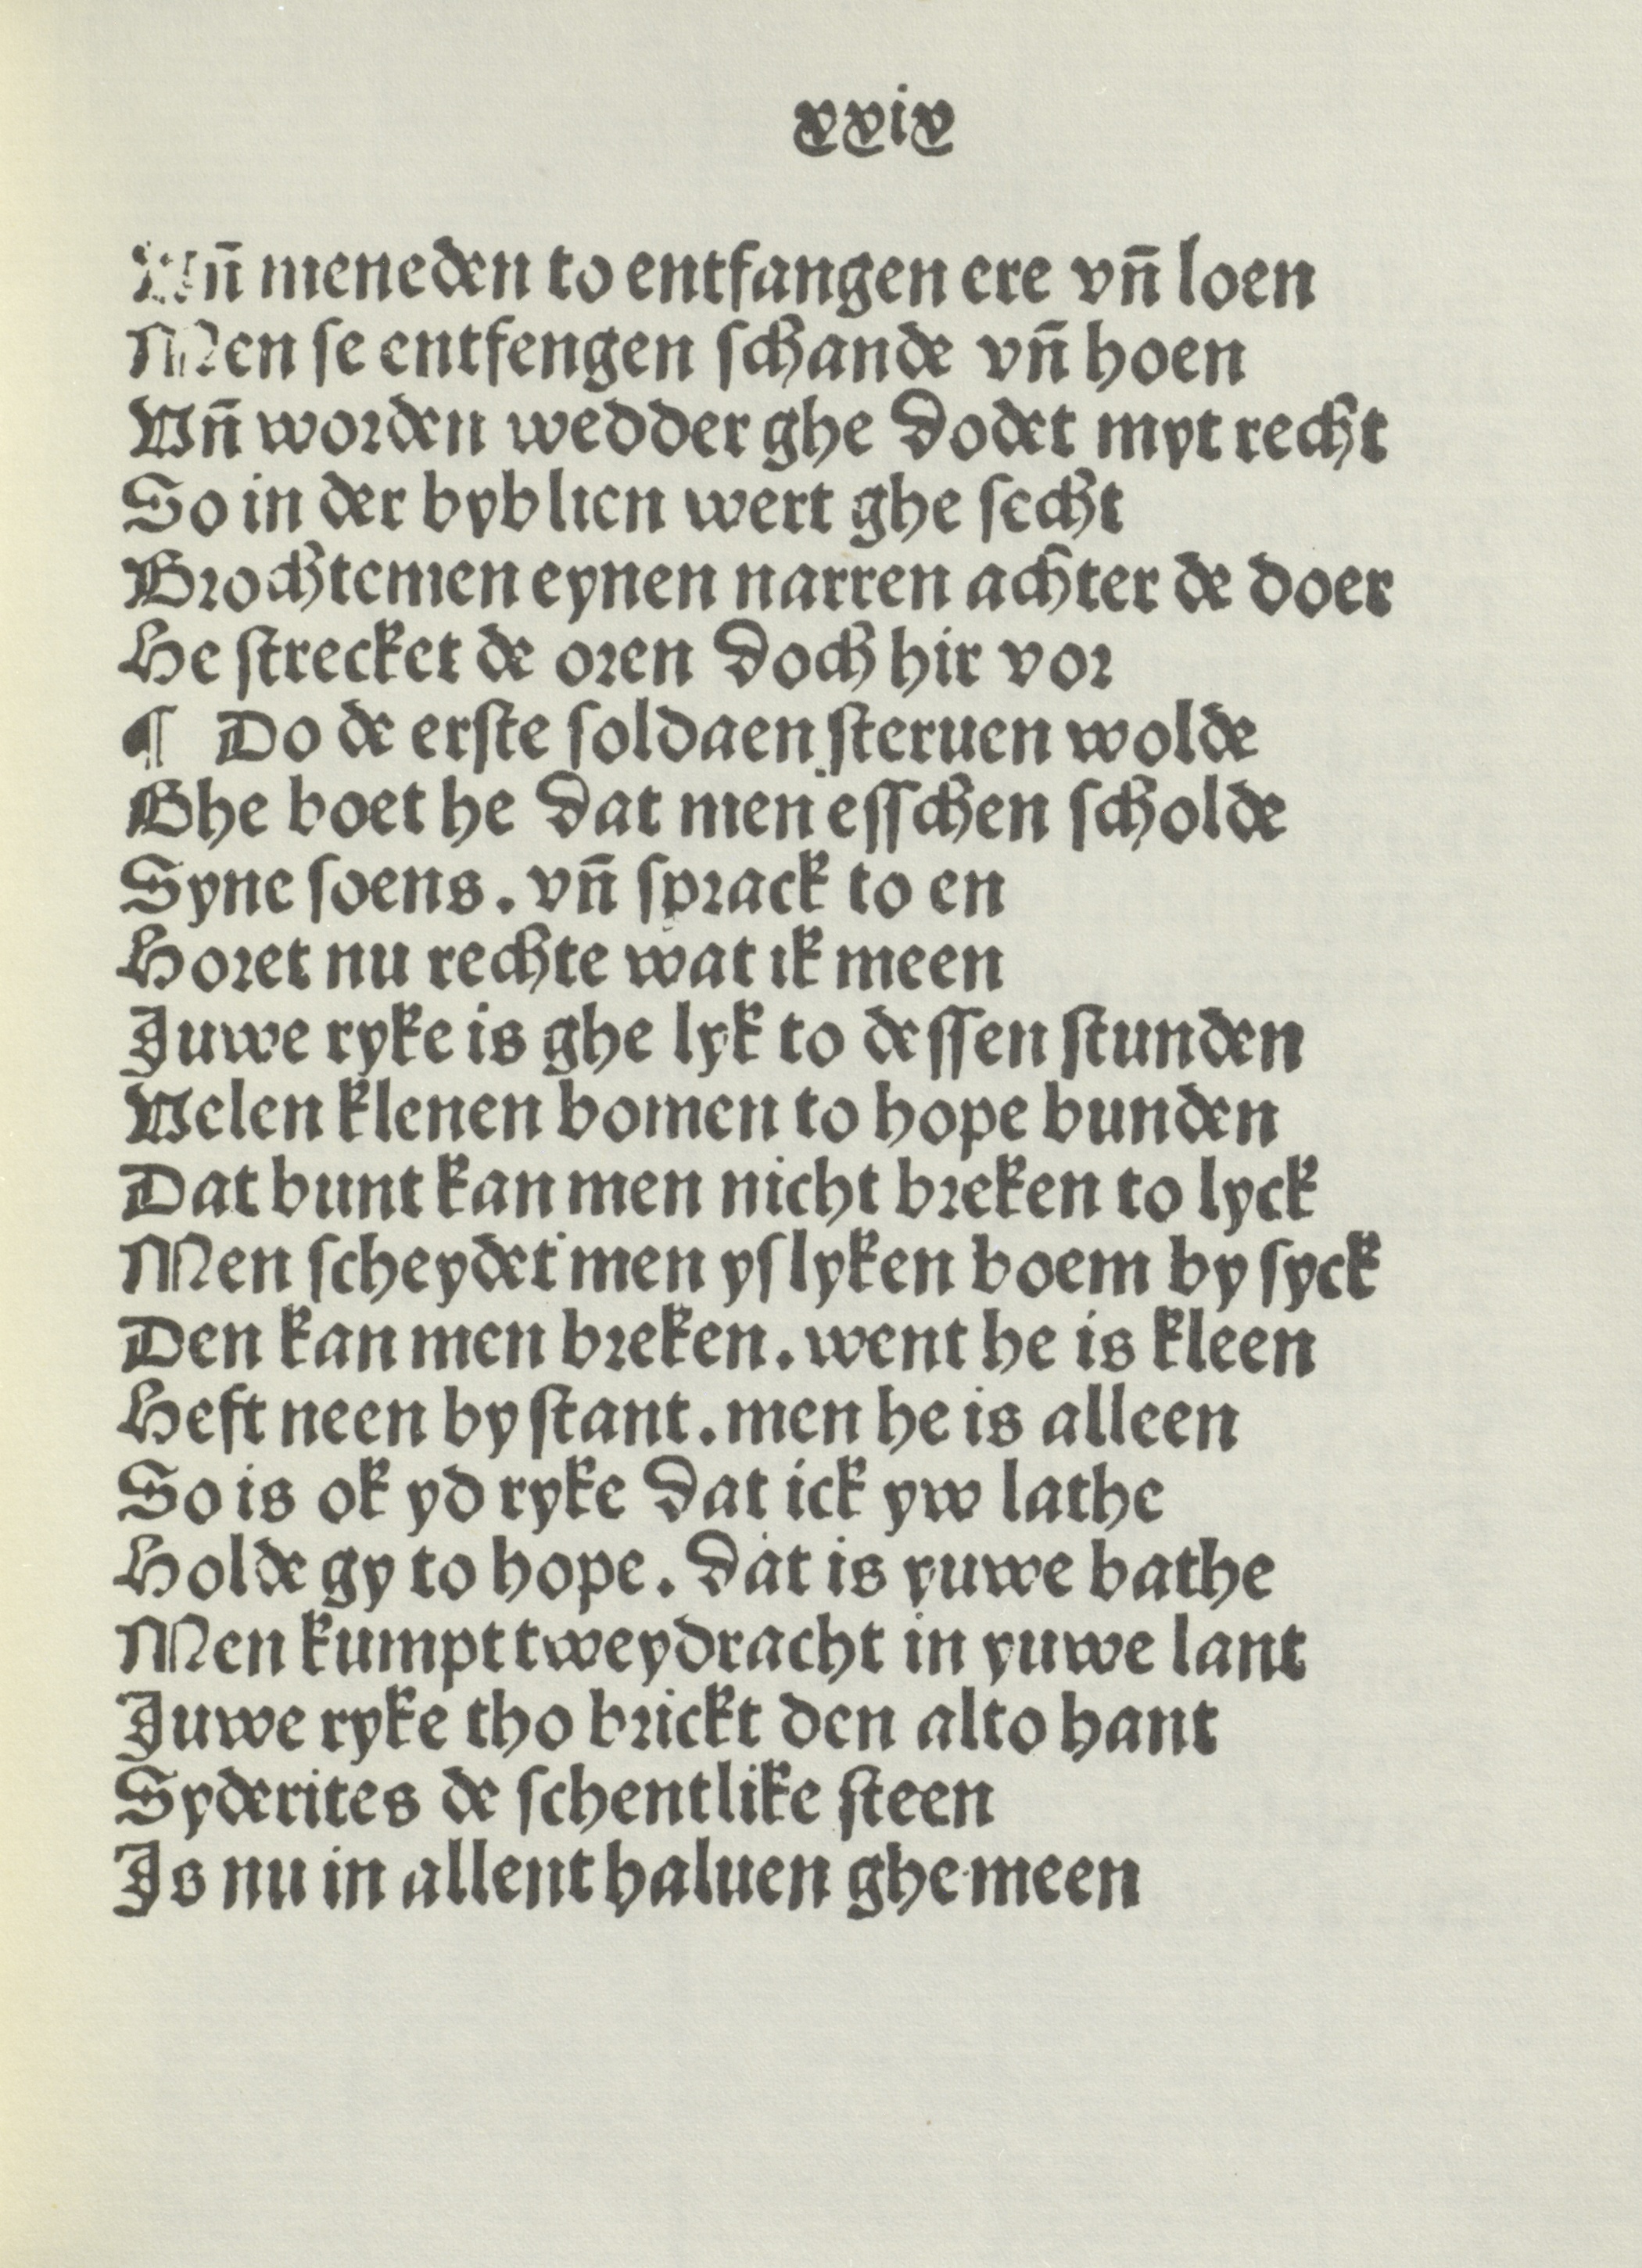 xxix
Vñ meneden to entfangen ere vñ loen
Men se entfengen schande vñ hoen
Vñ worden wedder ghe dodet myt recht
So in der byblien wert ghe secht
Brochtemen eynen narren achter de doer
He strecket de oren doch hir vor
¶ Do de erste soldaen steruen wolde
Ghe boet he dat men esschen scholde
Syne soens. vñ sprack to en
Horet nu rechte wat ik meen
Juwe ryke is ghe lyk to dessen stunden
Velen klenen bomen to hope bunden
Dat bunt kan men nicht breken to lyck
Men scheydet men yslyken boem by syck
Den kan men breken. went he is kleen
Heft neen by stant. men he is alleen
So is ok yd ryke dat ick yw lathe
Holde gy to hope. dat is yuwe bathe
Men kumpt tweydracht in yuwe lant
Juwe ryke tho brickt den alto hant
Syderites de schentlike steen
Is nu in allent haluen ghe meen